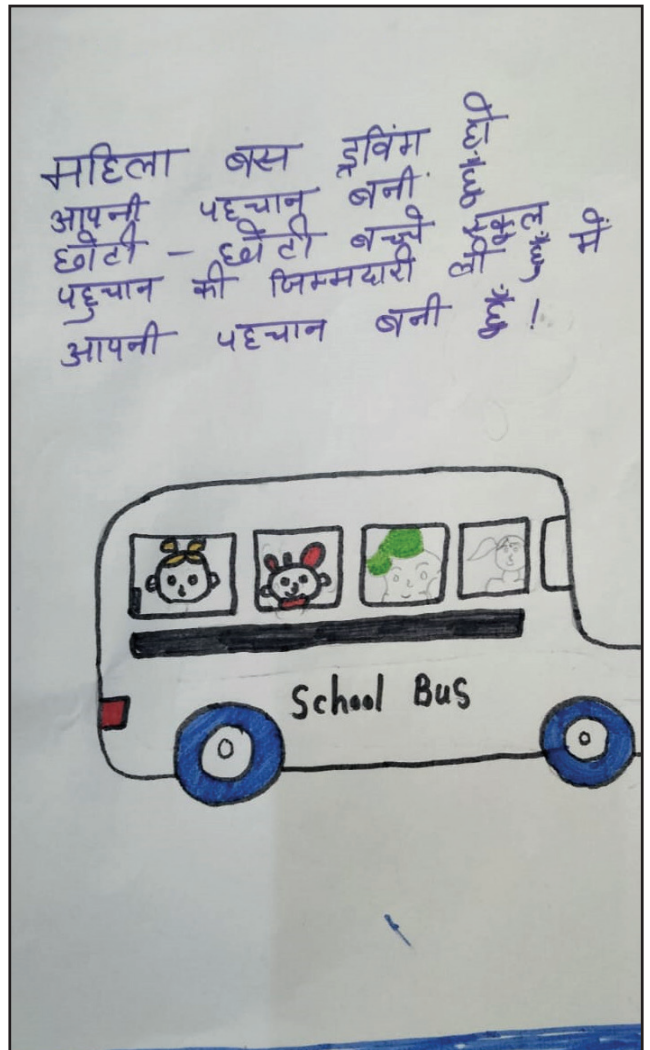 महिला बस ड्रविंग हो
आपनी पहचान बनी है
छोटी - छोटी बच्चे स्कूल में
पहुचान की जिम्मदारी ली है
आपनी पहचान बनी है !
School Bus